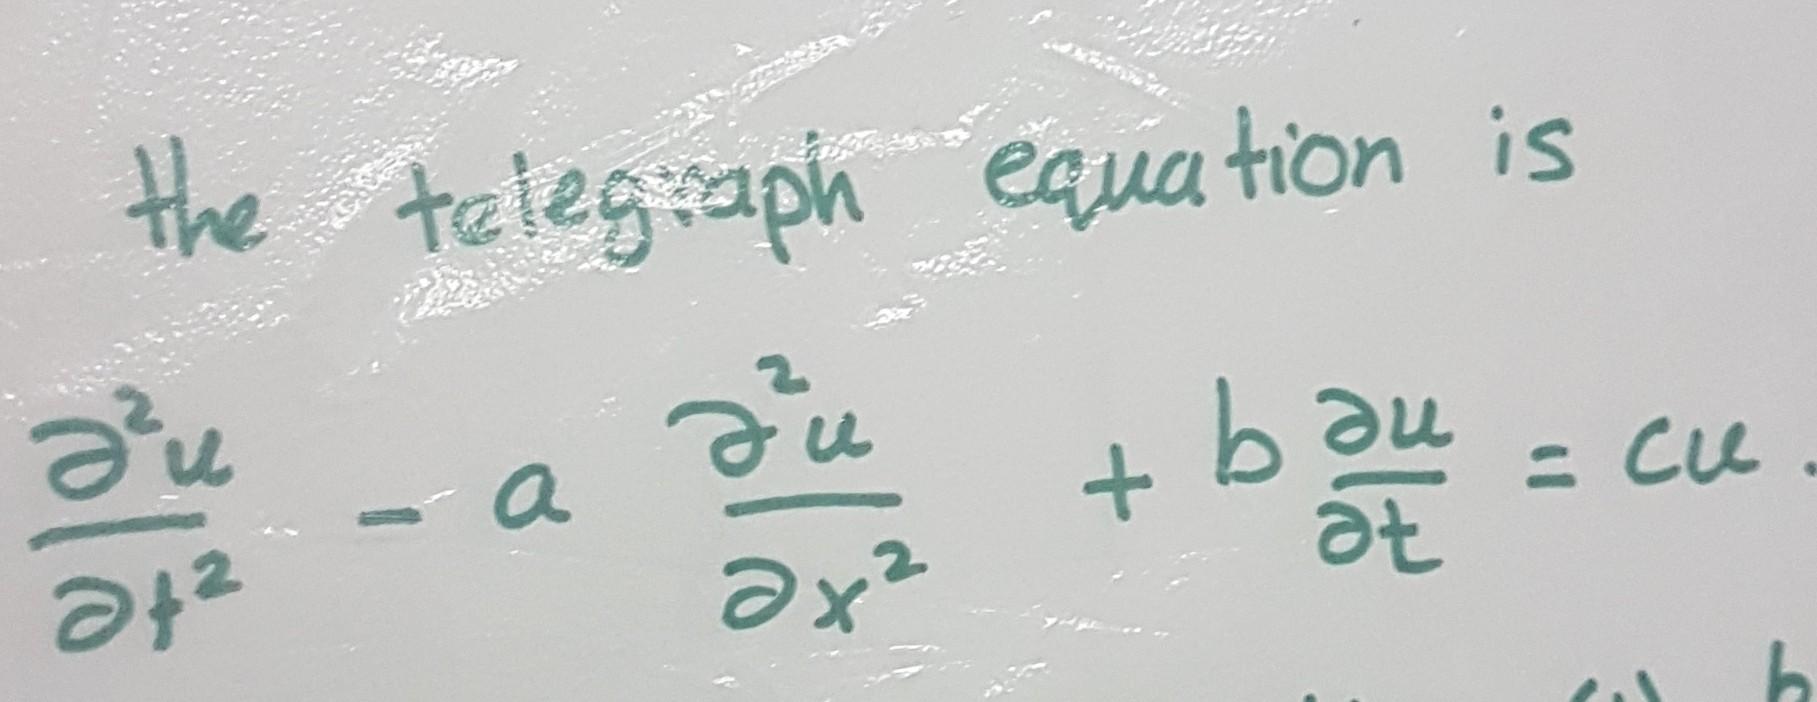 the telegraph equation is
∂²u/∂t² - a ∂²u/∂x² + b ∂u/∂t = cu.